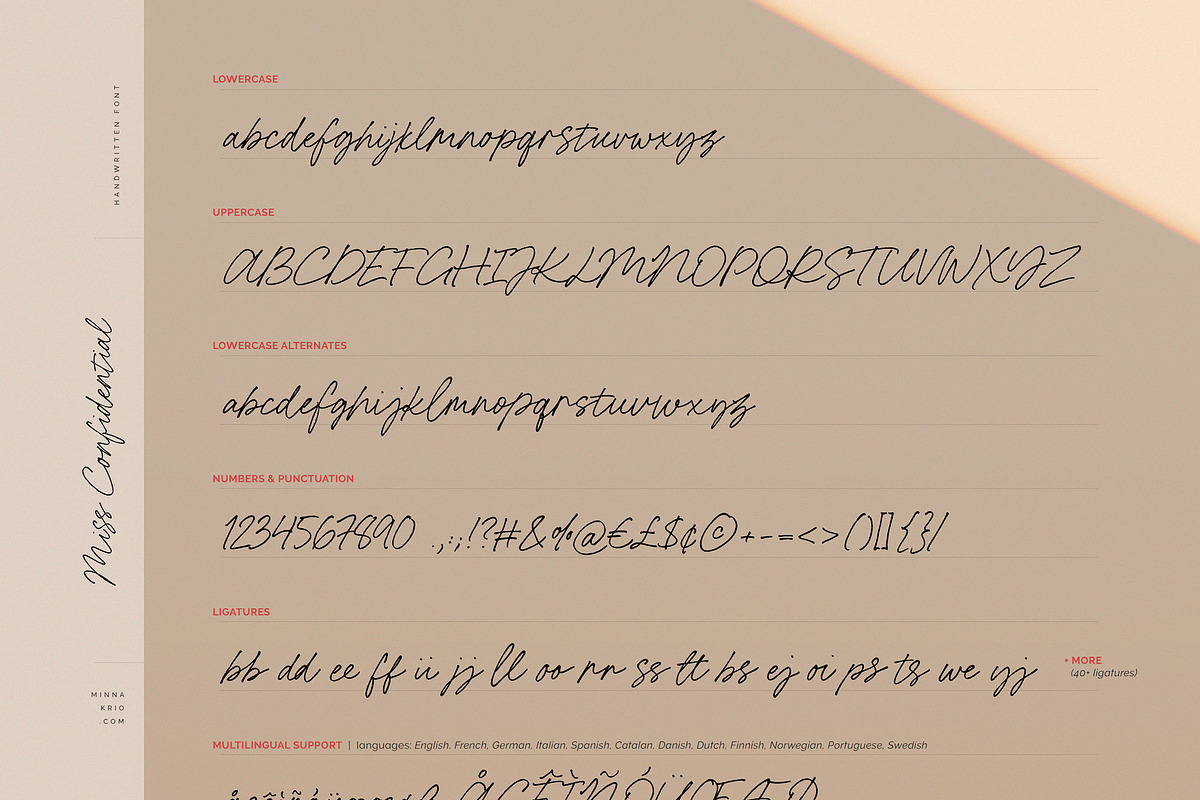 HANDWRITTEN FONT
Miss Confidential
MINNA
KRIO
.COM
LOWERCASE
abcdefghijklmnopqrstuvwxyz
UPPERCASE
ABCDEFGHIJKLMNOPQRSTUVWXYZ
LOWERCASE ALTERNATES
abcdefghijklmnopqrstuvwxyz
NUMBERS & PUNCTUATION
1234567890 .,:;!?#&%@€£$¢©+-=<>()[]{}/
LIGATURES
bb dd ee ff ii jj ll oo rr ss tt bs ej oi ps ts we yj
+ MORE
(40+ ligatures)
MULTILINGUAL SUPPORT | languages: English, French, German, Italian, Spanish, Catalan, Danish, Dutch, Finnish, Norwegian, Portuguese, Swedish